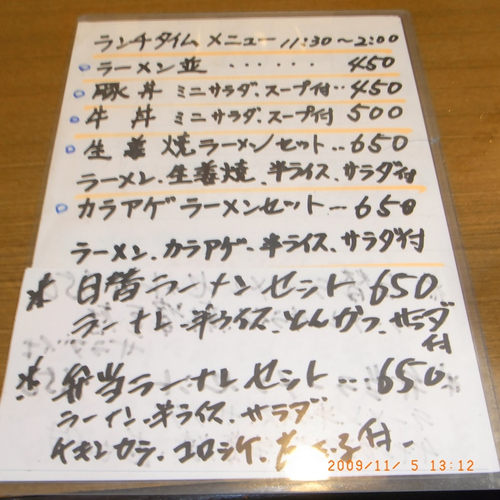 ランチタイム メニュー 11:30〜2:00
ラーメン並 ...... 450
豚丼 ミニサラダ、スープ付.. 450
牛丼 ミニサラダ、スープ付 500
生姜焼ラーメンセット.. 650
ラーメン、生姜焼、半ライス、サラダ付
カラアゲラーメンセット... 650
ラーメン、カラアゲ、半ライス、サラダ付
* 日替ラーメンセット 650
ラーメン、半ライス、とんかつ、サラダ付
* 弁当ラーメンセット... 650
ラーメン、半ライス、サラダ
チキンカラ、コロッケ、
2009/11/ 5 13:12